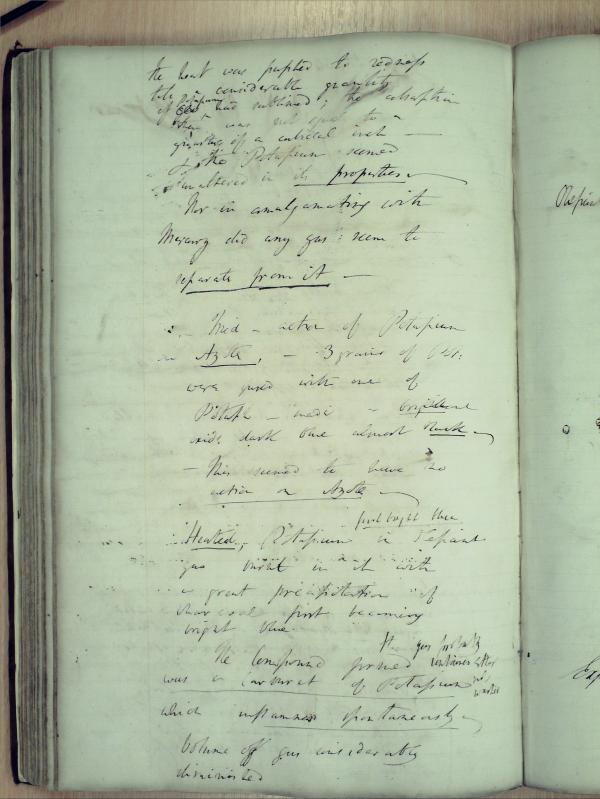 the heat was pushed to redness
till a considerable quantity
of had sublimed; the absorption
was not equal to a
of a cubical inch —
The Potasium seemed
unaltered in its properties
Nor in amalgamating with
Mercury did any gas seem to
separate from it —
Tried action of Potasium
on Azote, — 3 grains of Pot:
were fused with one of
Potash — made a brilliant
oxide dark blue almost black
— This seemed to have no
action on Azote
first bright blue
Heated, Potasium in Defiant
gas burnt in it with
a great precipitation of
charcoal first becoming
bright blue
The gas probably
The Compound formed contains
was a carburet of Potasium
which inflames spontaneously
Volume of gas considerably
diminished